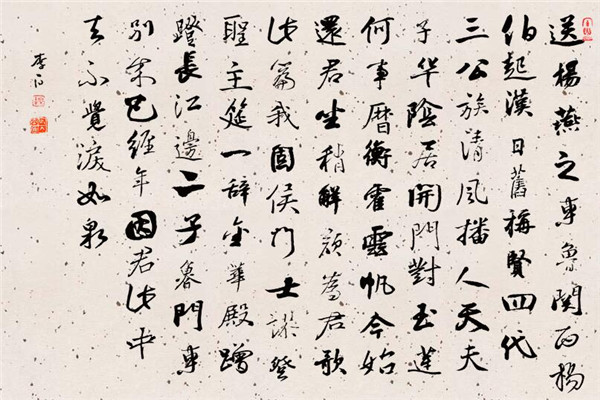 送楊燕之東魯關西楊
伯起漢日舊稱賢四代
三公族清風播人天夫
子华陰居開門對玉蓮
何事暦衡霍雲帆今始
還君坐稍解顔為君歌
此篇我固侯門士謬登
聖主筵一辞金華殿蹭
蹬長江邊二子魯門東
別來已經年因君此中
去不覺淚如泉
李白